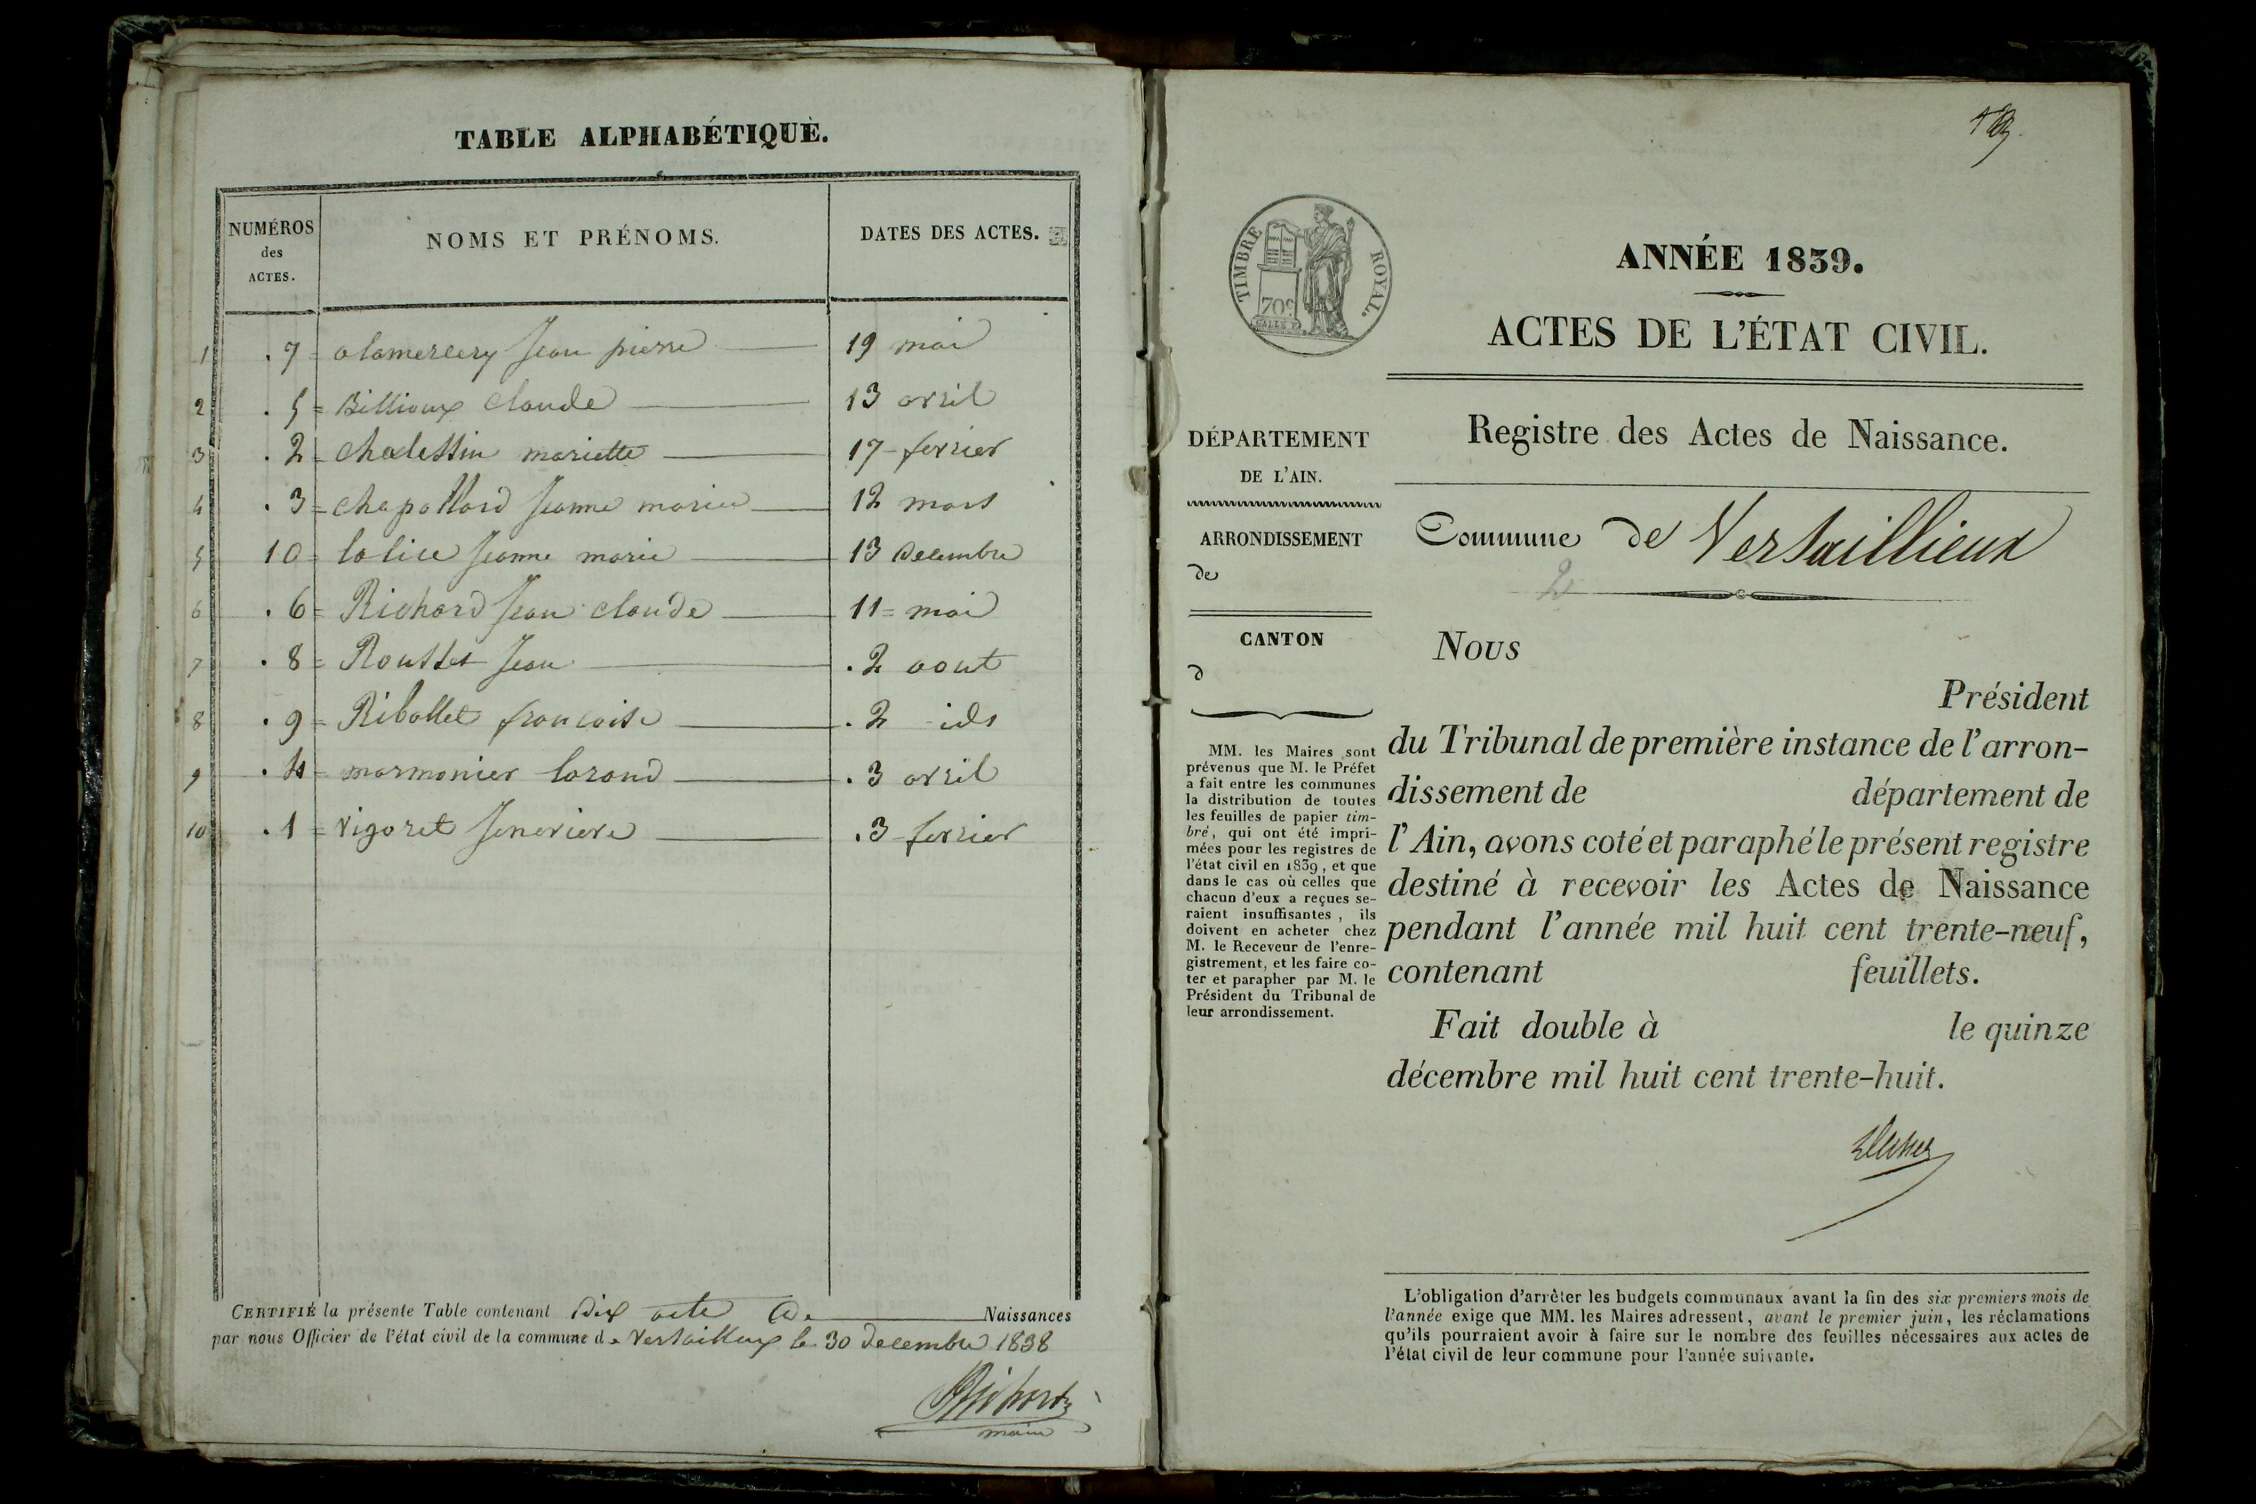 TABLE ALPHABÉTIQUE.
NUMÉROS
des
ACTES.
NOMS ET PRÉNOMS.
DATES DES ACTES.
1 . 7 = alamercery Jean pierre 19 mai
2 . 5 = Billioux Claude 13 avril
3 . 2 = Chalessin mariette 17 fevrier
4 . 3 = Chapollard Jeanne marie 12 mars
5 10 = Jeanne marie 13 Decembre
6 . 6 = Richard Jean Claude 11 = mai
7 . 8 = Rousset Jean . 2 aout
8 . 9 = Ribollet francoise . 2 ids
9 . 4 = marmonier . 3 avril
10 . 1 = vigoret Jenevieve . 3 fevrier
CERTIFIÉ la présente Table contenant dix acte de Naissances
par nous Officier de l'état civil de la commune de Versailleux le 30 decembre 1838
Richard
maire
TIMBRE ROYAL.
70c
ANNÉE 1839.
ACTES DE L'ÉTAT CIVIL.
Registre des Actes de Naissance.
Commune de Versaillieux
2
DÉPARTEMENT
DE L'AIN.
ARRONDISSEMENT
de
CANTON
d
MM. les Maires sont
prévenus que M. le Préfet
a fait entre les communes
la distribution de toutes
les feuilles de papier tim-
bré, qui ont été impri-
mées pour les registres de
l'état civil en 1839, et que
dans le cas où celles que
chacun d'eux a reçues se-
raient insuffisantes, ils
doivent en acheter chez
M. le Receveur de l'enre-
gistrement, et les faire co-
ter et parapher par M. le
Président du Tribunal de
leur arrondissement.
Nous
Président
du Tribunal de première instance de l'arron-
dissement de département de
l'Ain, avons coté et paraphé le présent registre
destiné à recevoir les Actes de Naissance
pendant l'année mil huit cent trente-neuf,
contenant feuillets.
Fait double à le quinze
décembre mil huit cent trente-huit.
L'obligation d'arrêter les budgets communaux avant la fin des six premiers mois de
l'année exige que MM. les Maires adressent, avant le premier juin, les réclamations
qu'ils pourraient avoir à faire sur le nombre des feuilles nécessaires aux actes de
l'état civil de leur commune pour l'année suivante.